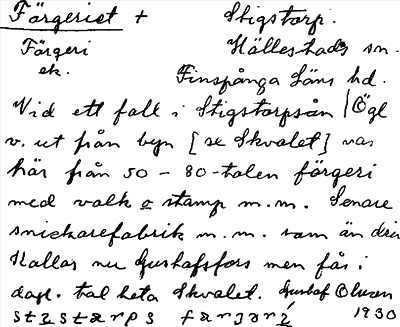 Färgeriet + Stigstorp.
Färgeri Hällestads sn.
ek. Finspånga Läns hd.
Vid ett fall i Stigstorpsån / Ögl
v. ut från byn [se Skvalet] var
här från 50-80-talen färgeri
med valk o stamp m.m. Senare
snickarefabrik m.m. som än drives
Kallas nu Gustafsfors men fås i
dagl. tal heta Skvalet. Gustaf Olsson
1930